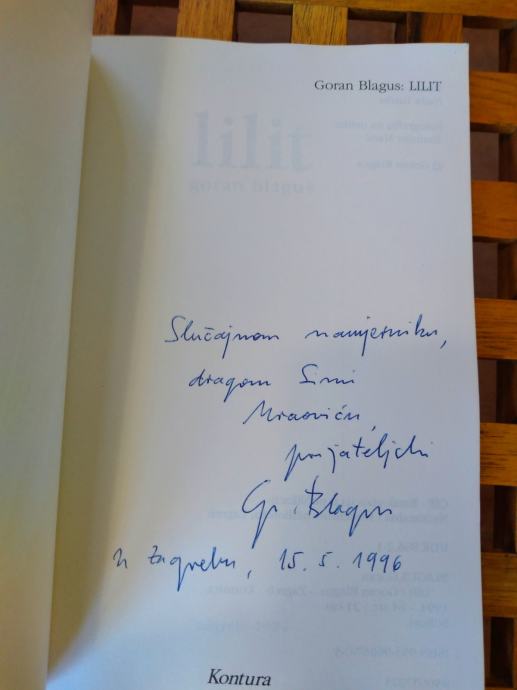 Goran Blagus: LILIT
lilit
goran blagus
Slučajnom namjerniku,
dragom Simi
Mraoviću,
prijateljski
G. Blagus
u Zagrebu, 15. 5. 1996
Kontura